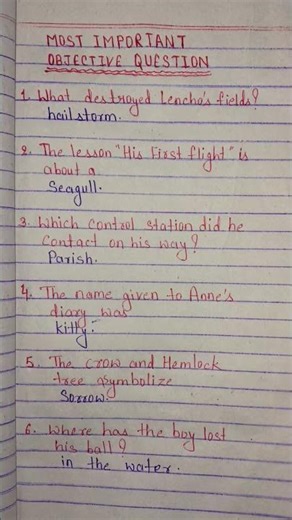 MOST IMPORTANT
OBJECTIVE QUESTION
1. What destroyed Lencho's fields?
hailstorm.
2. The lesson "His First flight" is
about a
Seagull.
3. Which control station did he
contact on his way?
Parish.
4. The name given to Anne's
diary was
kitty.
5. The crow and Hemlock
tree symbolize
Sorrow.
6. Where has the boy lost
his ball?
in the water.